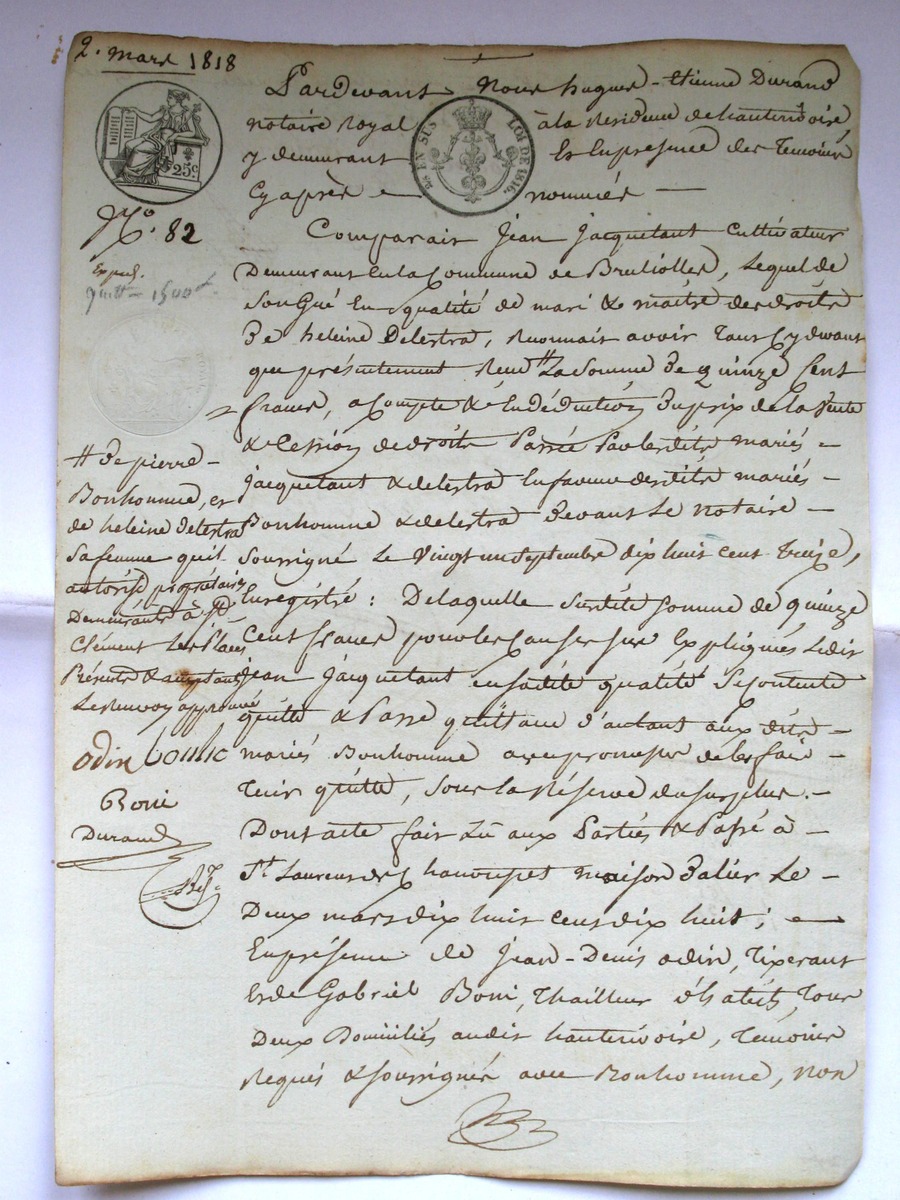 2. mars 1818
Pardevant Nous hugues-Etienne Durand
notaire Royal à la Résidence de hauterivoire,
y demeurant Et En présence des Temoins
Cy après nommés
25c.
2es EN SUS LOI DE 1816.
No. 82
Exped.
quitt. 1500 f.
Comparait Jean Jacquetant Cultivateur
Demeurant En la Commune de Bruliolles, Lequel de
Son Gré En qualité de mari & maitre des droits
De heleine Delestra, Reconnait avoir Tant Cy devant
que présentement Recu # La Somme De quinze Cent
francs, a Compte & En Déduction Du prix de la Vente
& Cession de droits Passée Par lesdits mariés
jacquetant & delestra En faveur desdits mariés
Bonhomme & delestra Devant Le notaire
Soussigné Le Vingt un Septembre dix huit cent Treize,
Enregistré : De laquelle Susdite Somme de quinze
Cent francs pour les Causes sus Expliquées Ledit
jean Jacquetant en sadite qualité Se contente
quitte & Passe quittance d'autant aux dits
mariés Bonhomme avec promesse de les faire
Tenir quitte, Sous la Réserve du surplus.
Dont acte fait Lû aux Parties & Passé à
St. Laurent de Chamousset maison Le
Deux mars dix huit cent dix huit ;
En présence de Jean-Denis odin, Tixerant
Et de Gabriel Boni, Thailleur d'habits, Tous
Deux Domiciliés audit hauterivoire, Temoins
Requis & Soussignés avec Bonhomme, non
# De pierre
Bonhomme, et
de heleine Delestra
Sa femme qu'il
autorise propriétaires
Demeurants à St.
Clément Les Places
Présents & acceptants
Le Renvoy approuvé
odin bonhe
Boni
Durand